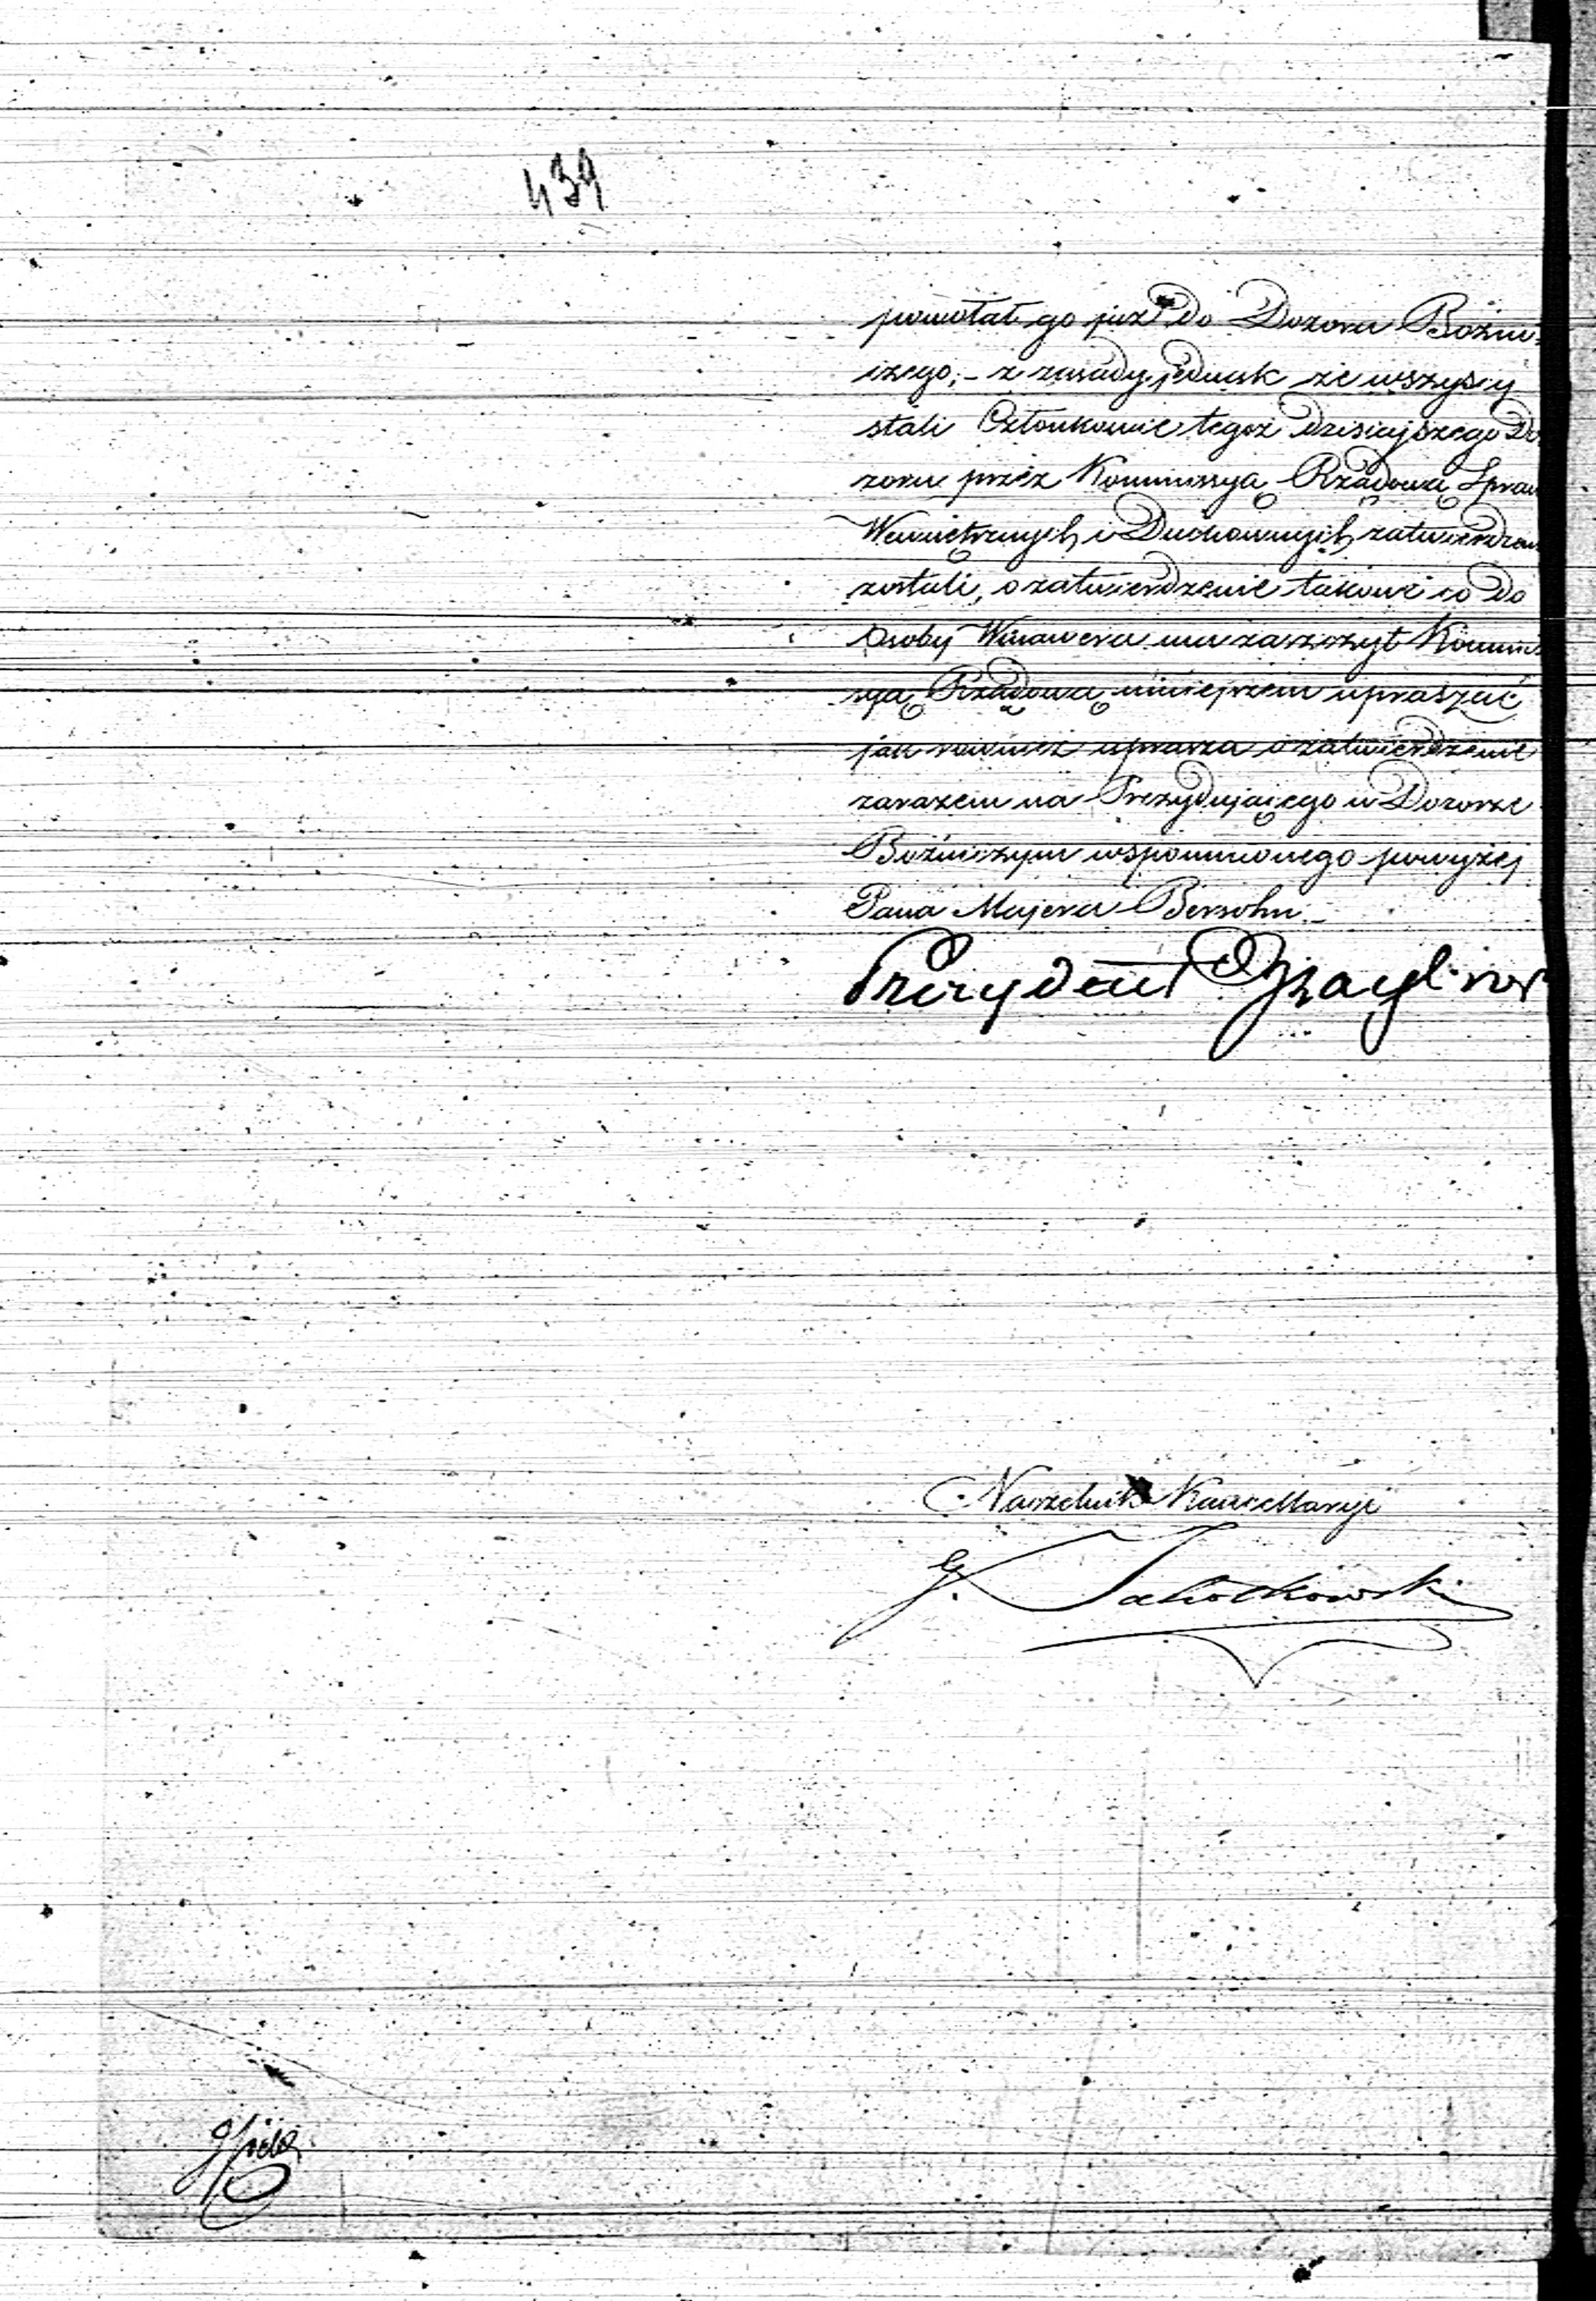 439
powołał go już do Dozoru Bóżni-
czego, - z zasady jednak że wszyscy
stali Członkowie tegoż dzisiejszego Do
zoru przez Kommissyą Rządową Spraw
Wewnętrznych i Duchownych zatwierdzeni
zostali, o zatwierdzenie takowe co do
osoby Winawera ma zaszczyt Kommis
syą Rządową niniejszem upraszać
jak również uprasza o zatwierdzenie
zarazem na Prezydującego w Dozorze
Bóżniczym wspomnionego powyżej
Pana Majera Bersohn. -
Prezydent
Naczelnik Kancellaryi